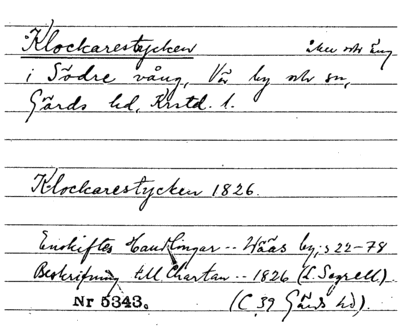 Klockarestycken åker och äng
i Södre vång, Vä by och sn,
Gärds hd, Krstd. l.
Klockarestycken 1826.
Enskiftes Handlingar -- Wääs by, s 22-78
Beskrifning till Chartan -- 1826 (L. Segrell).
Nr 5343. (C 39 Gärds hd).